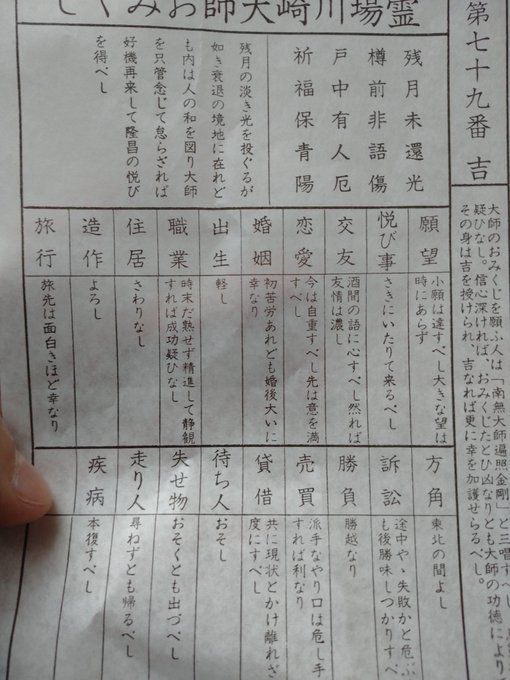 第七十九番 吉
大師のおみくじを願ふ人は「南無大師遍照金剛」と三唱すべし
疑ひなし。信心深ければ、おみくじたとひ凶なりとも大師の功徳により
その身は吉を授けられ、吉なれば更に幸を加護せらるべし。
霊場川崎大師おみくじ
残月未還光
樽前非語傷
戸中有人厄
祈福保青陽
残月の淡き光を投ぐるが
如き衰退の境地に在れど
も内は人の和を図り大師
を只管念じて怠らざれば
好機再来して隆昌の悦び
を得べし
願望
小願は達すべし大きな望は
時にあらず
悦び事
さきにいたりて来るべし
交友
酒間の語に心すべし然れば
友情は濃し
恋愛
今は自重すべし先は意を満
すべし
婚姻
初苦労あれども婚後大いに
幸なり
出生
軽し
職業
時末だ熟せず精進して静観
すれば成功疑ひなし
住居
さわりなし
造作
よろし
旅行
旅先は面白きほど幸なり
方角
東北の間よし
訴訟
途中やゝ失敗かと危ぶ
も後勝味しつかりすべ
勝負
勝越なり
売買
派手なやり口は危し手
すれば利なり
貸借
共に現状とかけ離れざ
度にすべし
待ち人
おそし
失せ物
おそくとも出づべし
走り人
尋ねずとも帰るべし
疾病
本復すべし